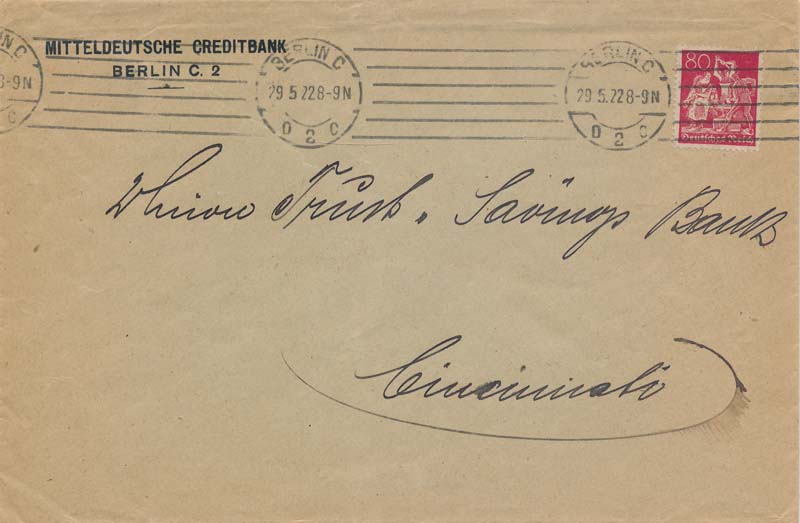 MITTELDEUTSCHE CREDITBANK
BERLIN C. 2
BERLIN C
29.5.22 8-9N
o 2 c
BERLIN C
29.5.22 8-9N
o 2 c
80
Deutsches Reich
Union Trust & Savings Bank
Cincinnati